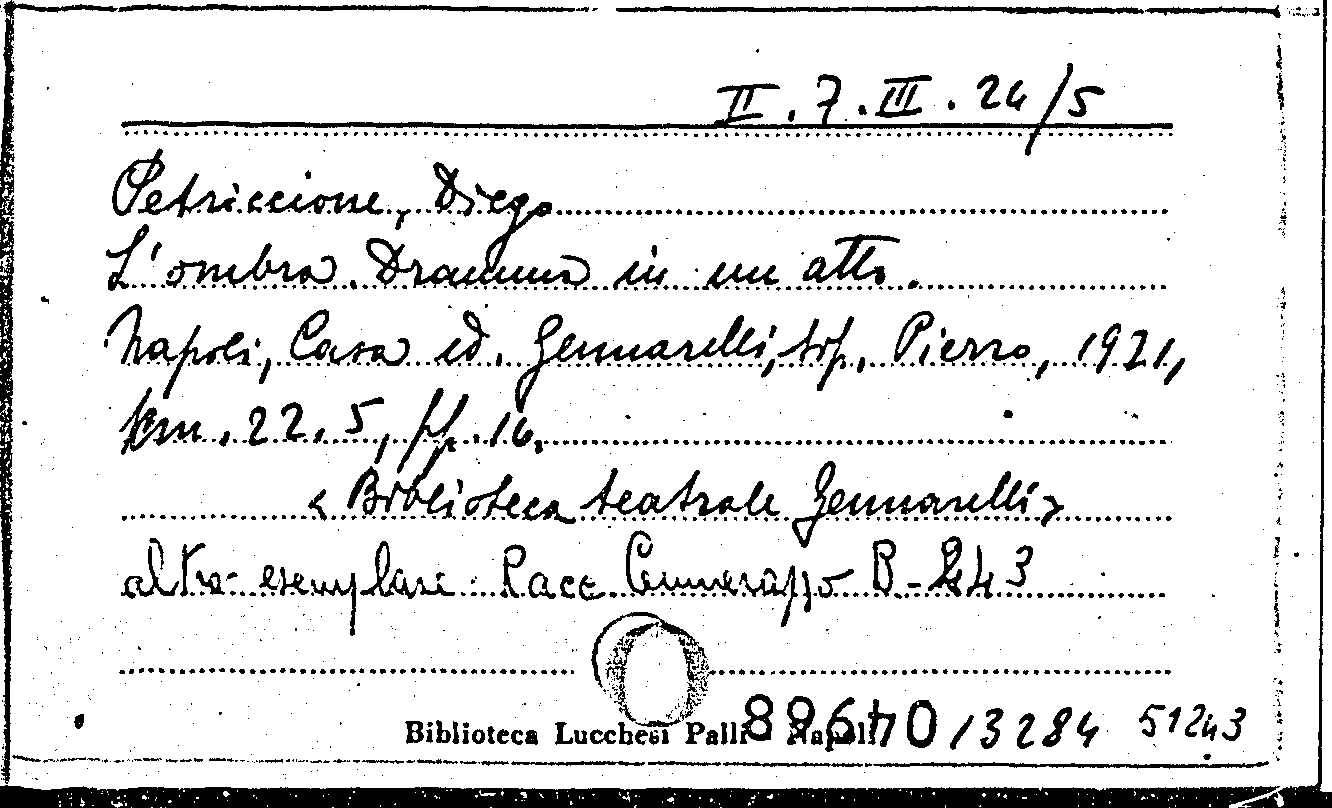 II.7.III.24/5
Petriccione, Diego
L'ombra. Dramma in un atto.
Napoli, Casa ed. Gennarelli, tip. Pierro, 1921,
cm. 22.5, pp. 16.
< Biblioteca teatrale Gennarelli >
altro esemplare: Racc B-243
Biblioteca Lucchesi Palli Napoli
13284 51243